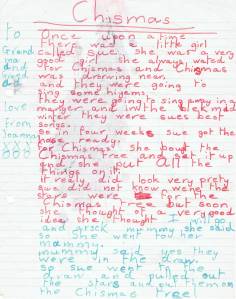 Chismas
to
Grandma
and
love
from
Joanna
xxx
Once upon a time
There was a little girl
called Lucie she was a very
good girl she always wated
for Chismas and Chismas
was drawing near
and they were going to
sing some
they were going to sing away in a
manger and in the bleck mid
winter they were sues best
songs.
so in four weeks sue got the
house ready.
for Chismas she boud the
Chismas tree and set it up
and she put all the
things on it.
it really did look very prety
sue did not know wehe the
stars were for the
Chismas tree but soon
she thought of a very good
idea she thought I will go
and arsck mummy she said
so she went too her
mammy.
mummy said yes they
were in the draw
so sue went to the
draw and pulled out
the stars and put them on
the Chismas tree!